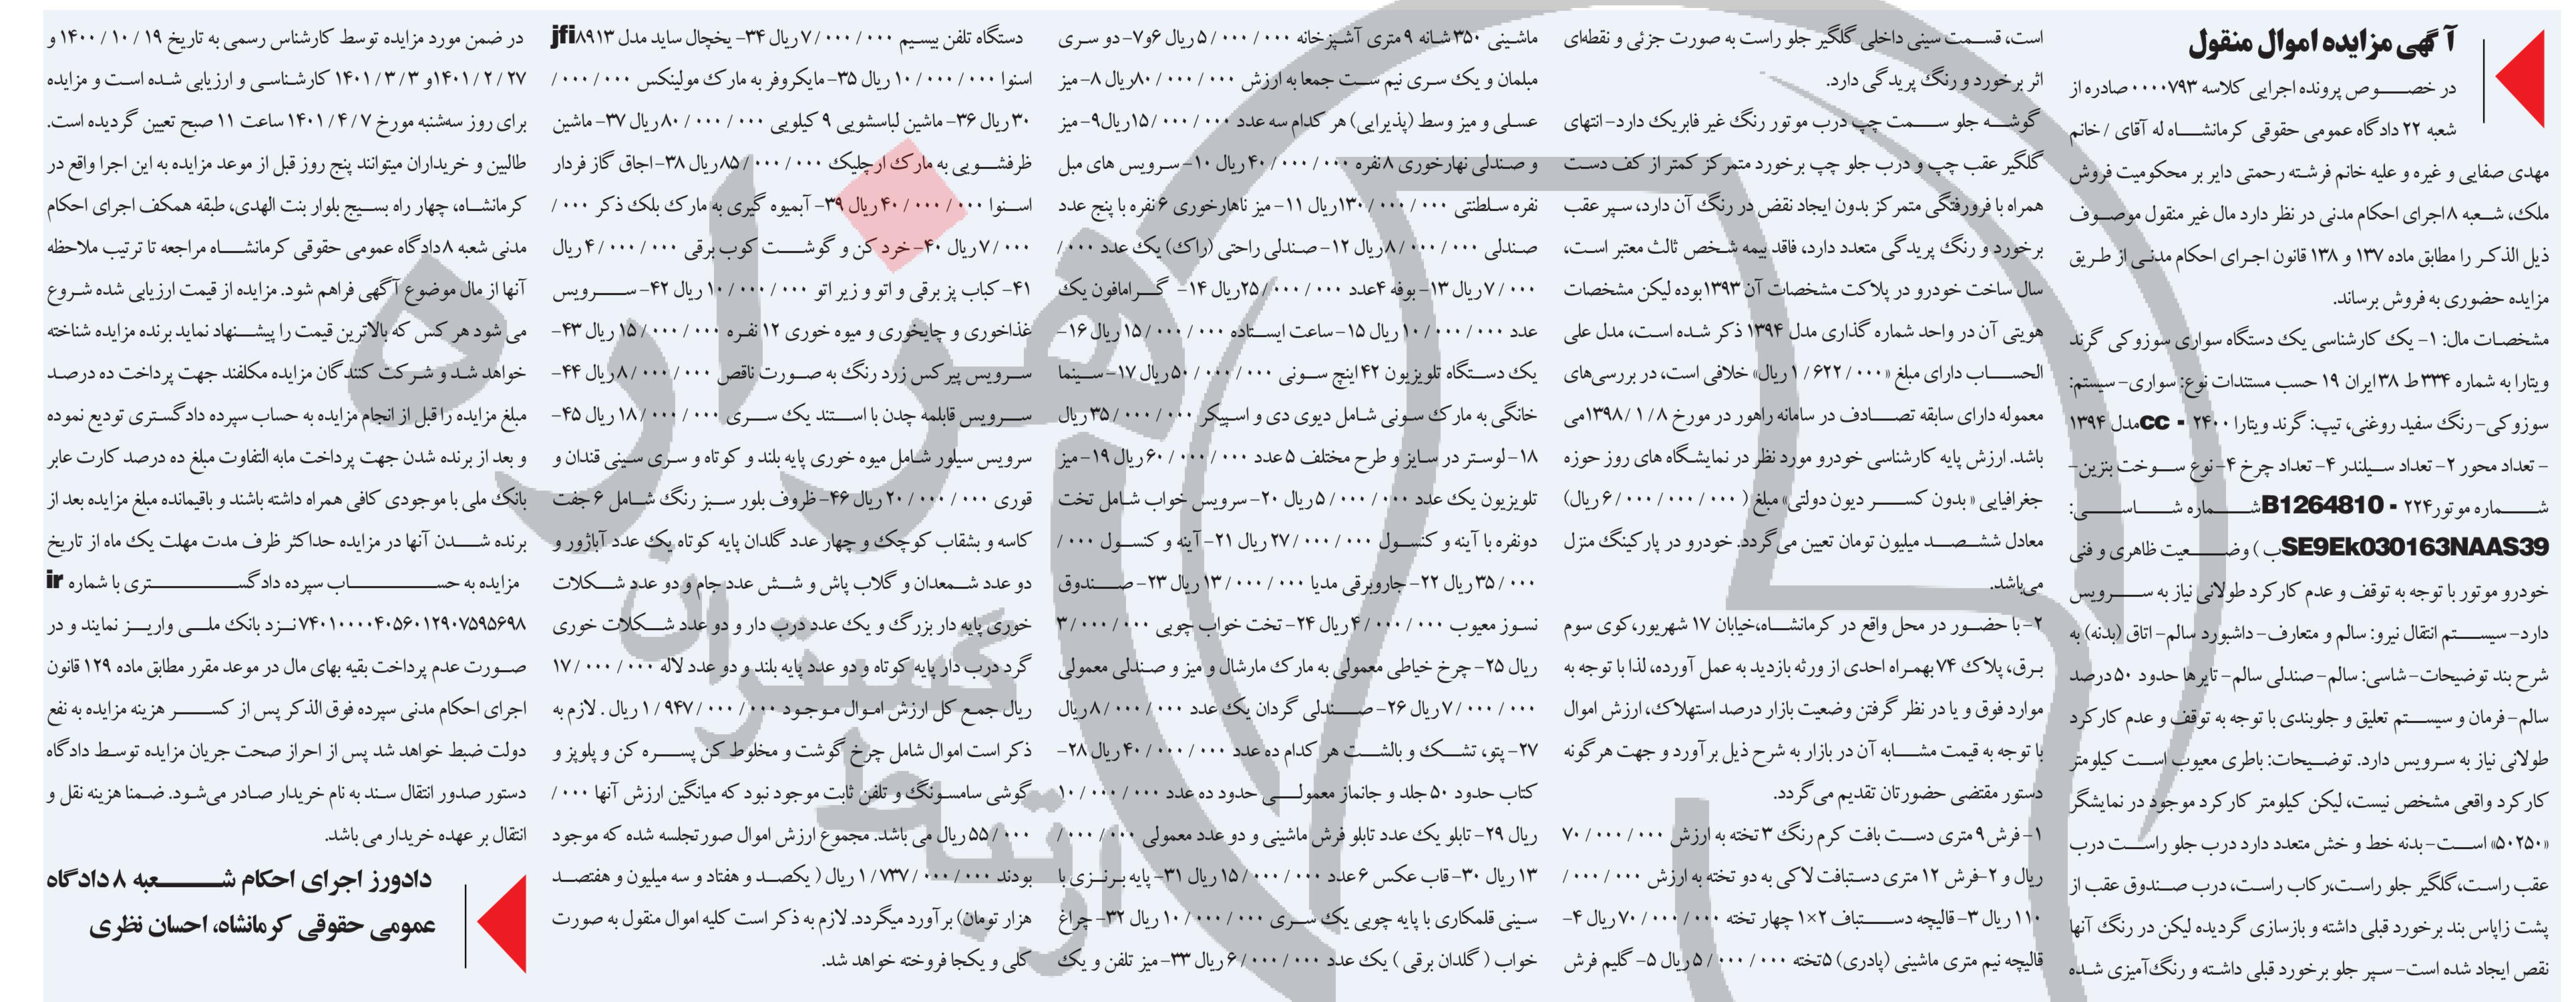 آگهی مزایده اموال منقول
در خصوص پرونده اجرایی کلاسه ۰۰۰۰۷۹۳ صادره از
شعبه ۲۲ دادگاه عمومی حقوقی کرمانشاه له آقای / خانم
مهدی صفایی و غیره و علیه خانم فرشته رحمتی دایر بر محکومیت فروش
ملک، شعبه ۸ اجرای احکام مدنی در نظر دارد مال غیر منقول موصوف
ذیل الذکر را مطابق ماده ۱۳۷ و ۱۳۸ قانون اجرای احکام مدنی از طریق
مزایده حضوری به فروش برساند.
مشخصات مال: ۱- یک کارشناسی یک دستگاه سواری سوزوکی گرند
ویتارا به شماره ۳۳۴ط ۳۸ایران ۱۹ حسب مستندات نوع: سواری- سیستم:
سوزوکی- رنگ سفید روغنی، تیپ: گرند ویتارا ۲۴۰۰ - ccمدل ۱۳۹۴
- تعداد محور ۲- تعداد سیلندر ۴- تعداد چرخ ۴-نوع سوخت بنزین-
شماره موتور۲۲۴ - B1264810شماره شاسی:
SE9Ek030163NAAS39ب ) وضعیت ظاهری و فنی
خودرو موتور با توجه به توقف و عدم کارکرد طولانی نیاز به سرویس
دارد- سیستم انتقال نیرو: سالم و متعارف- داشبورد سالم- اتاق (بدنه) به
شرح بند توضیحات- شاسی: سالم- صندلی سالم- تایرها حدود ۵۰ درصد
سالم- فرمان و سیستم تعلیق و جلوبندی با توجه به توقف و عدم کارکرد
طولانی نیاز به سرویس دارد. توضیحات: باطری معیوب است کیلومتر
کارکرد واقعی مشخص نیست، لیکن کیلومتر کارکرد موجود در نمایشگر
«۵۰۲۵۰» است- بدنه خط و خش متعدد دارد درب جلو راست درب
عقب راست،گلگیر جلو راست،رکاب راست، درب صندوق عقب از
پشت زاپاس بند برخورد قبلی داشته و بازسازی گردیده لیکن در رنگ آنها
نقص ایجاد شده است- سپر جلو برخورد قبلی داشته و رنگ‌آمیزی شده
است، قسمت سینی داخلی گلگیر جلو راست به صورت جزئی و نقطه‌ای
اثر برخورد و رنگ پریدگی دارد.
گوشه جلو سمت چپ درب موتور رنگ غیر فابریک دارد- انتهای
گلگیر عقب چپ و درب جلو چپ برخورد متمرکز کمتر از کف دست
همراه با فرورفتگی متمرکز بدون ایجاد نقض در رنگ آن دارد، سپر عقب
برخورد و رنگ پریدگی متعدد دارد، فاقد بیمه شخص ثالث معتبر است،
سال ساخت خودرو در پلاکت مشخصات آن ۱۳۹۳بوده لیکن مشخصات
هویتی آن در واحد شماره گذاری مدل ۱۳۹۴ ذکر شده است، مدل علی
الحساب دارای مبلغ «۱/۶۲۲/۰۰۰ ریال» خلافی است، در بررسی‌های
معموله دارای سابقه تصادف در سامانه راهور در مورخ ۱۳۹۸/۱/۸می
باشد. ارزش پایه کارشناسی خودرو مورد نظر در نمایشگاه های روز حوزه
جغرافیایی «بدون کسر دیون دولتی» مبلغ (۶/۰۰۰/۰۰۰/۰۰۰ ریال)
معادل ششصد میلیون تومان تعیین می‌گردد. خودرو در پارکینگ منزل
می‌باشد.
۲- با حضور در محل واقع در کرمانشاه،خیابان ۱۷ شهریور،کوی سوم
برق، پلاک ۷۴ بهمراه احدی از ورثه بازدید به عمل آورده، لذا با توجه به
موارد فوق و یا در نظر گرفتن وضعیت بازار درصد استهلاک، ارزش اموال
با توجه به قیمت مشابه آن در بازار به شرح ذیل برآورد و جهت هرگونه
دستور مقتضی حضورتان تقدیم می‌گردد.
۱- فرش ۹ متری دست بافت کرم رنگ ۳ تخته به ارزش ۷۰/۰۰۰/۰۰۰
ریال و ۲-فرش ۱۲ متری دستبافت لاکی به دو تخته به ارزش ۰۰۰/۰۰۰/
۱۱۰ ریال ۳- قالیچه دستباف ۲×۱ چهار تخته ۷۰/۰۰۰/۰۰۰ ریال ۴-
قالیچه نیم متری ماشینی (پادری) ۵تخته ۵/۰۰۰/۰۰۰ ریال ۵- گلیم فرش
ماشینی ۳۵۰ شانه ۹ متری آشپزخانه ۵/۰۰۰/۰۰۰ ریال ۶و۷- دو سری
مبلمان و یک سری نیم ست جمعا به ارزش ۸۰/۰۰۰/۰۰۰ریال ۸- میز
عسلی و میز وسط (پذیرایی) هر کدام سه عدد ۱۵/۰۰۰/۰۰۰ریال۹- میز
و صندلی نهارخوری ۸نفره ۴۰/۰۰۰/۰۰۰ ریال ۱۰- سرویس های مبل
نفره سلطنتی ۱۳۰/۰۰۰/۰۰۰ریال ۱۱- میز ناهارخوری ۶ نفره با پنج عدد
صندلی ۸/۰۰۰/۰۰۰ریال ۱۲- صندلی راحتی (راک) یک عدد ۰۰۰/
۷/۰۰۰ریال ۱۳- بوفه ۴عدد ۲۵/۰۰۰/۰۰۰ریال ۱۴- گرامافون یک
عدد ۱۰/۰۰۰/۰۰۰ ریال ۱۵- ساعت ایستاده ۱۵/۰۰۰/۰۰۰ ریال ۱۶-
یک دستگاه تلویزیون ۴۲ اینچ سونی ۵۰/۰۰۰/۰۰۰ریال ۱۷- سینما
خانگی به مارک سونی شامل دیوی دی و اسپیکر ۳۵/۰۰۰/۰۰۰ ریال
۱۸- لوستر در سایز و طرح مختلف ۵ عدد ۶۰/۰۰۰/۰۰۰ ریال ۱۹- میز
تلویزیون یک عدد ۵/۰۰۰/۰۰۰ ریال ۲۰- سرویس خواب شامل تخت
دونفره با آینه و کنسول ۲۷/۰۰۰/۰۰۰ ریال ۲۱- آینه و کنسول ۰۰۰/
۳۵/۰۰۰ ریال ۲۲- جاروبرقی مدیا ۱۳/۰۰۰/۰۰۰ ریال ۲۳- صندوق
نسوز معیوب ۴/۰۰۰/۰۰۰ ریال ۲۴- تخت خواب چوبی ۳/۰۰۰/۰۰۰
ریال ۲۵- چرخ خیاطی معمولی به مارک مارشال و میز و صندلی معمولی
۷/۰۰۰/۰۰۰ ریال ۲۶- صندلی گردان یک عدد ۸/۰۰۰/۰۰۰ ریال
۲۷- پتو، تشک و بالشت هر کدام ده عدد ۴۰/۰۰۰/۰۰۰ ریال ۲۸-
کتاب حدود ۵۰ جلد و جانماز معمولی حدود ده عدد ۱۰/۰۰۰/۰۰۰
ریال ۲۹- تابلو یک عدد تابلو فرش ماشینی و دو عدد معمولی ۰۰۰/۰۰۰/
۱۳ ریال ۳۰- قاب عکس ۶ عدد ۱۵/۰۰۰/۰۰۰ ریال ۳۱- پایه برنزی با
سینی قلمکاری با پایه چوبی یک سری ۱۰/۰۰۰/۰۰۰ ریال ۳۲- چراغ
خواب ( گلدان برقی ) یک عدد ۶/۰۰۰/۰۰۰ ریال ۳۳- میز تلفن و یک
دستگاه تلفن بیسیم ۷/۰۰۰/۰۰۰ ریال ۳۴- یخچال ساید مدل jfi۸۹۱۳
اسنوا ۱۰/۰۰۰/۰۰۰ ریال ۳۵- مایکروفر به مارک مولینکس ۰۰۰/۰۰۰/
۳۰ ریال ۳۶- ماشین لباسشویی ۹ کیلویی ۸۰/۰۰۰/۰۰۰ ریال ۳۷- ماشین
ظرفشویی به مارک ارچلیک ۸۵/۰۰۰/۰۰۰ریال ۳۸- اجاق گاز فردار
اسنوا ۴۰/۰۰۰/۰۰۰ ریال ۳۹- آبمیوه گیری به مارک بلک ذکر ۰۰۰/
۷/۰۰۰ ریال ۴۰- خرد کن و گوشت کوب برقی ۴/۰۰۰/۰۰۰ ریال
۴۱- کباب پز برقی و اتو و زیر اتو ۱۰/۰۰۰/۰۰۰ ریال ۴۲- سرویس
غذاخوری و چایخوری و میوه خوری ۱۲ نفره ۱۵/۰۰۰/۰۰۰ ریال ۴۳-
سرویس پیرکس زرد رنگ به صورت ناقص ۸/۰۰۰/۰۰۰ریال ۴۴-
سرویس قابلمه چدن با استند یک سری ۱۸/۰۰۰/۰۰۰ ریال ۴۵-
سرویس سیلور شامل میوه خوری پایه بلند و کوتاه و سری سینی قندان و
قوری ۲۰/۰۰۰/۰۰۰ ریال ۴۶- ظروف بلور سبز رنگ شامل ۶ جفت
کاسه و بشقاب کوچک و چهار عدد گلدان پایه کوتاه یک عدد آباژور و
دو عدد شمعدان و گلاب پاش و شش عدد جام و دو عدد شکلات
خوری پایه دار بزرگ و یک عدد درب دار و دو عدد شکلات خوری
گرد درب دار پایه کوتاه و دو عدد پایه بلند و دو عدد لاله ۱۷/۰۰۰/۰۰۰
ریال جمع کل ارزش اموال موجود ۱/۹۴۷/۰۰۰/۰۰۰ ریال . لازم به
ذکر است اموال شامل چرخ گوشت و مخلوط کن پسره کن و پلوپز و
گوشی سامسونگ و تلفن ثابت موجود نبود که میانگین ارزش آنها ۰۰۰/
۵۵/۰۰۰ ریال می باشد. مجموع ارزش اموال صورتجلسه شده که موجود
بودند ۱/۷۳۷/۰۰۰/۰۰۰ ریال ( یکصد و هفتاد و سه میلیون و هفتصد
هزار تومان) برآورد میگردد. لازم به ذکر است کلیه اموال منقول به صورت
کلی و یکجا فروخته خواهد شد.
در ضمن مورد مزایده توسط کارشناس رسمی به تاریخ ۱۴۰۰/۱۰/۱۹ و
۱۴۰۱/۲/۲۷و ۱۴۰۱/۳/۳ کارشناسی و ارزیابی شده است و مزایده
برای روز سه‌شنبه مورخ ۱۴۰۱/۴/۷ ساعت ۱۱ صبح تعیین گردیده است.
طالبین و خریداران میتوانند پنج روز قبل از موعد مزایده به این اجرا واقع در
کرمانشاه، چهار راه بسیج بلوار بنت الهدی، طبقه همکف اجرای احکام
مدنی شعبه ۸دادگاه عمومی حقوقی کرمانشاه مراجعه تا ترتیب ملاحظه
آنها از مال موضوع آگهی فراهم شود. مزایده از قیمت ارزیابی شده شروع
می شود هر کس که بالاترین قیمت را پیشنهاد نماید برنده مزایده شناخته
خواهد شد و شرکت کنندگان مزایده مکلفند جهت پرداخت ده درصد
مبلغ مزایده را قبل از انجام مزایده به حساب سپرده دادگستری تودیع نموده
و بعد از برنده شدن جهت پرداخت مابه التفاوت مبلغ ده درصد کارت عابر
بانک ملی با موجودی کافی همراه داشته باشند و باقیمانده مبلغ مزایده بعد از
برنده شدن آنها در مزایده حداکثر ظرف مدت مهلت یک ماه از تاریخ
مزایده به حساب سپرده دادگستری با شماره ir
۷۴۰۱۰۰۰۰۴۰۵۶۰۱۲۹۰۷۵۹۵۶۹۸نزد بانک ملی واریز نمایند و در
صورت عدم پرداخت بقیه بهای مال در موعد مقرر مطابق ماده ۱۲۹ قانون
اجرای احکام مدنی سپرده فوق الذکر پس از کسر هزینه مزایده به نفع
دولت ضبط خواهد شد پس از احراز صحت جریان مزایده توسط دادگاه
دستور صدور انتقال سند به نام خریدار صادر می‌شود. ضمنا هزینه نقل و
انتقال بر عهده خریدار می باشد.
دادورز اجرای احکام شعبه ۸ دادگاه
عمومی حقوقی کرمانشاه، احسان نظری
هزاره
گسترش
ارتباط